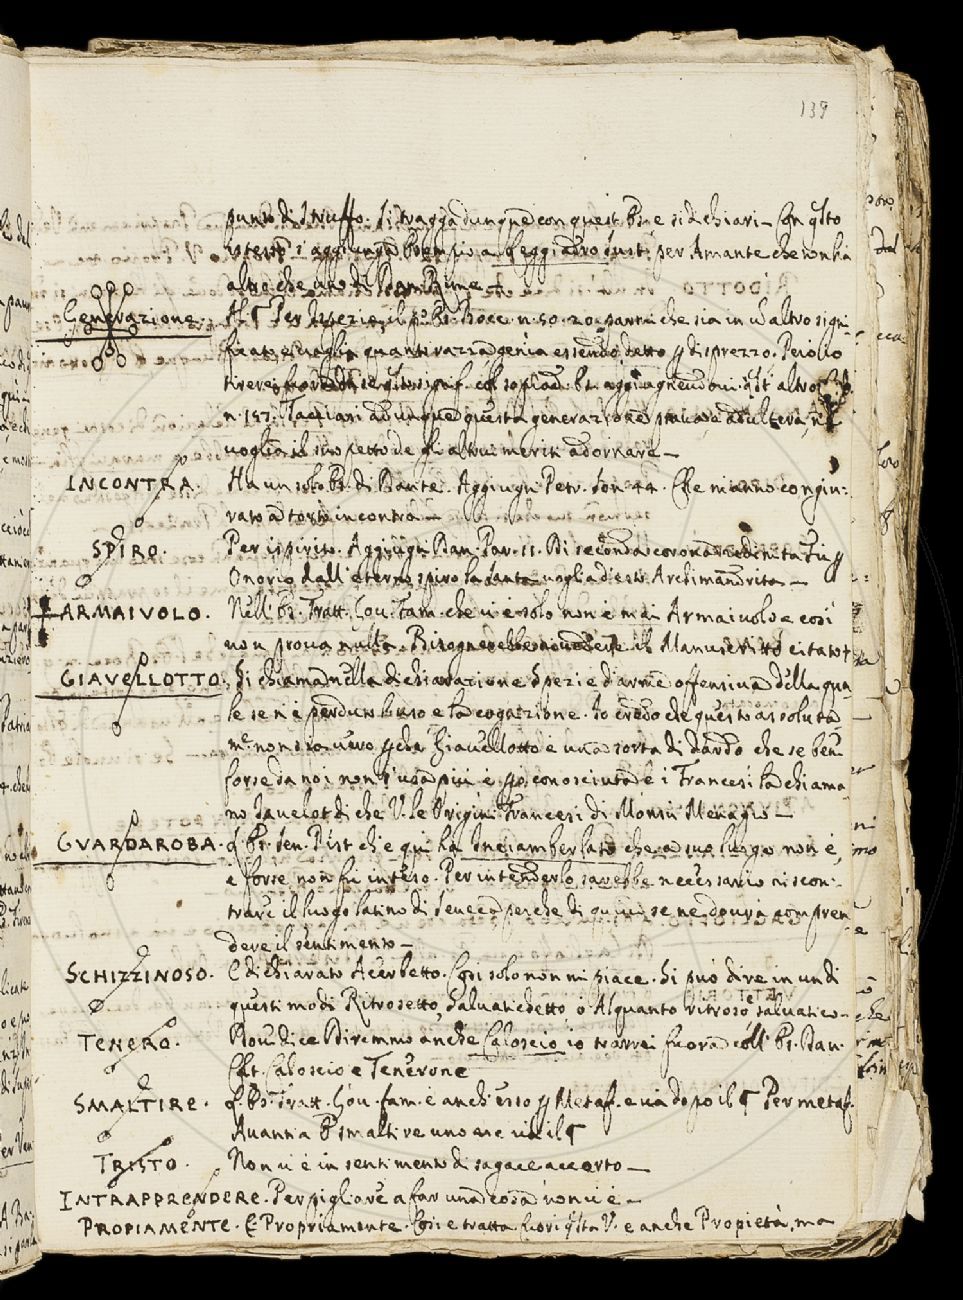 139
punto di Struffo. Si tragga dunque con quest. Es. e si dichiari — Con qsto
per Amante che non ha
altro che uno di Dan. Rime +
Generazione. Al ¶ Per Ispezie il po. Es. Bocc. n. 50. 20. partii che sia in un altro signi-
ficato e voglia quanti razza genia essendo detto p disprezzo. Per io lo
tirerei fuora
n. 157. Facciasi adunque questa generazione prava, e adultera, nè
voglia il suo petto de gl'altrui meriti adornare —
INCONTRA. Ha un solo Es. di Dante. Aggiugni Petr. Son. 44. Che m'anno congiu-
rato a torto incontra —
SPIRO. Per ispirito. Aggiugni Dan. Par. 11. Di seconda corona redimita Fu p
Onorio dall'eterno spiro La santa voglia d'esto Archimandrita —
ARMAIVOLO. Nell'Es. Tratt. Gov. Fam. che vi è solo non è mai Armaivolo e così
non prova nulla. Bisognerebbe rivedere il Manuscritto citato +
GIAVELLOTTO. Si chiama nella dichiarazione Spezie d'arme offensiva della qua-
le se n'è perduto l'uso e la cognizione. Io credo che questo assoluta-
me. non sia vero pche Giavellotto è una sorta di dardo che se ben
forse da noi non s'usa più è po conosciuta e i Francesi la chiama-
no Javelot di che V. le Origini Francesi di Monsù Menagio —
GVARDAROBA. L'Es. Sen. Pist. ch'è qui ha Inciamberlato che a suo luogo non è,
e forse non fu inteso. Per intenderlo sarebbe necessario riscon-
trare il luogo latino di Seneca perche di quivi se ne dovrà compren-
dere il sentimento —
SCHIZZINOSO. E dichiarato Acerbetto. Così solo non mi piace. Si può dire in un di
questi modi Ritrosetto, Salvatichetto, o Alquanto ritroso e salvatico —
TENERO. Dov. dice Diremmo anche Caloscio io trarrei fuora coll'Es. Dav.
Colt. Caloscio e Tenerone
SMALTIRE. L'Es. Tratt. Gov. fam. è anch'esso p Metaf. e va dopo il ¶ Per metaf.
Avanti a Smaltire uno ane in il ¶
TRISTO. Non vi è in sentimento di sagace accorto —
INTRAPPRENDERE. Per pigliare a far una cosa non vi è —
PROPIAMENTE. E Propriamente. Così è tratta fuori qsta V. e anche Propietà, ma